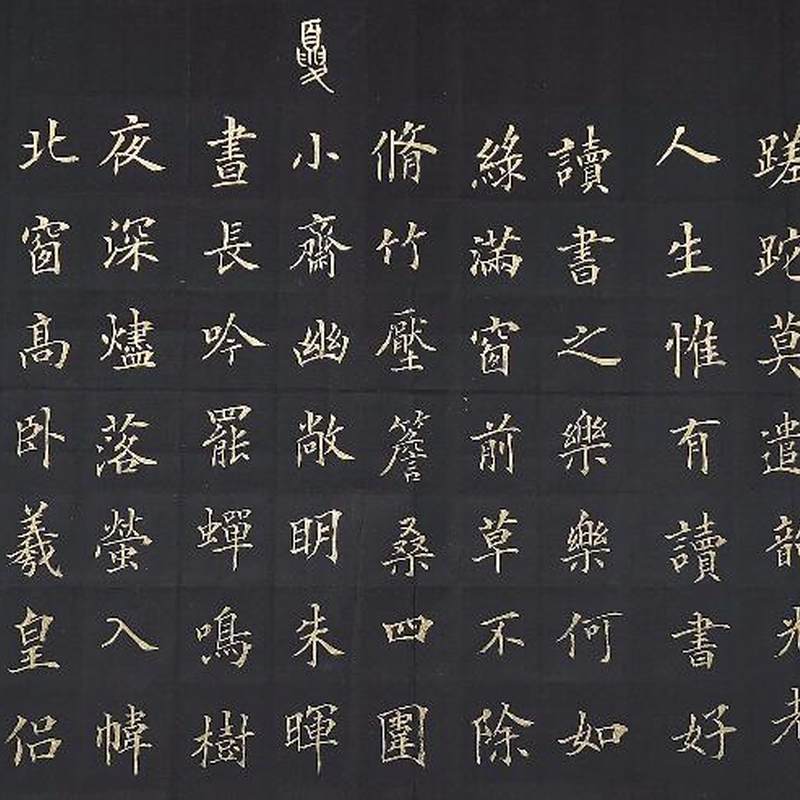 蹉跎莫遣韶光老
人生惟有讀書好
讀書之樂樂何如
綠滿窗前草不除
夏
脩竹壓簷桑四圍
小齋幽敞明朱暉
晝長吟罷蟬鳴樹
夜深燼落螢入幃
北窗高卧羲皇侶